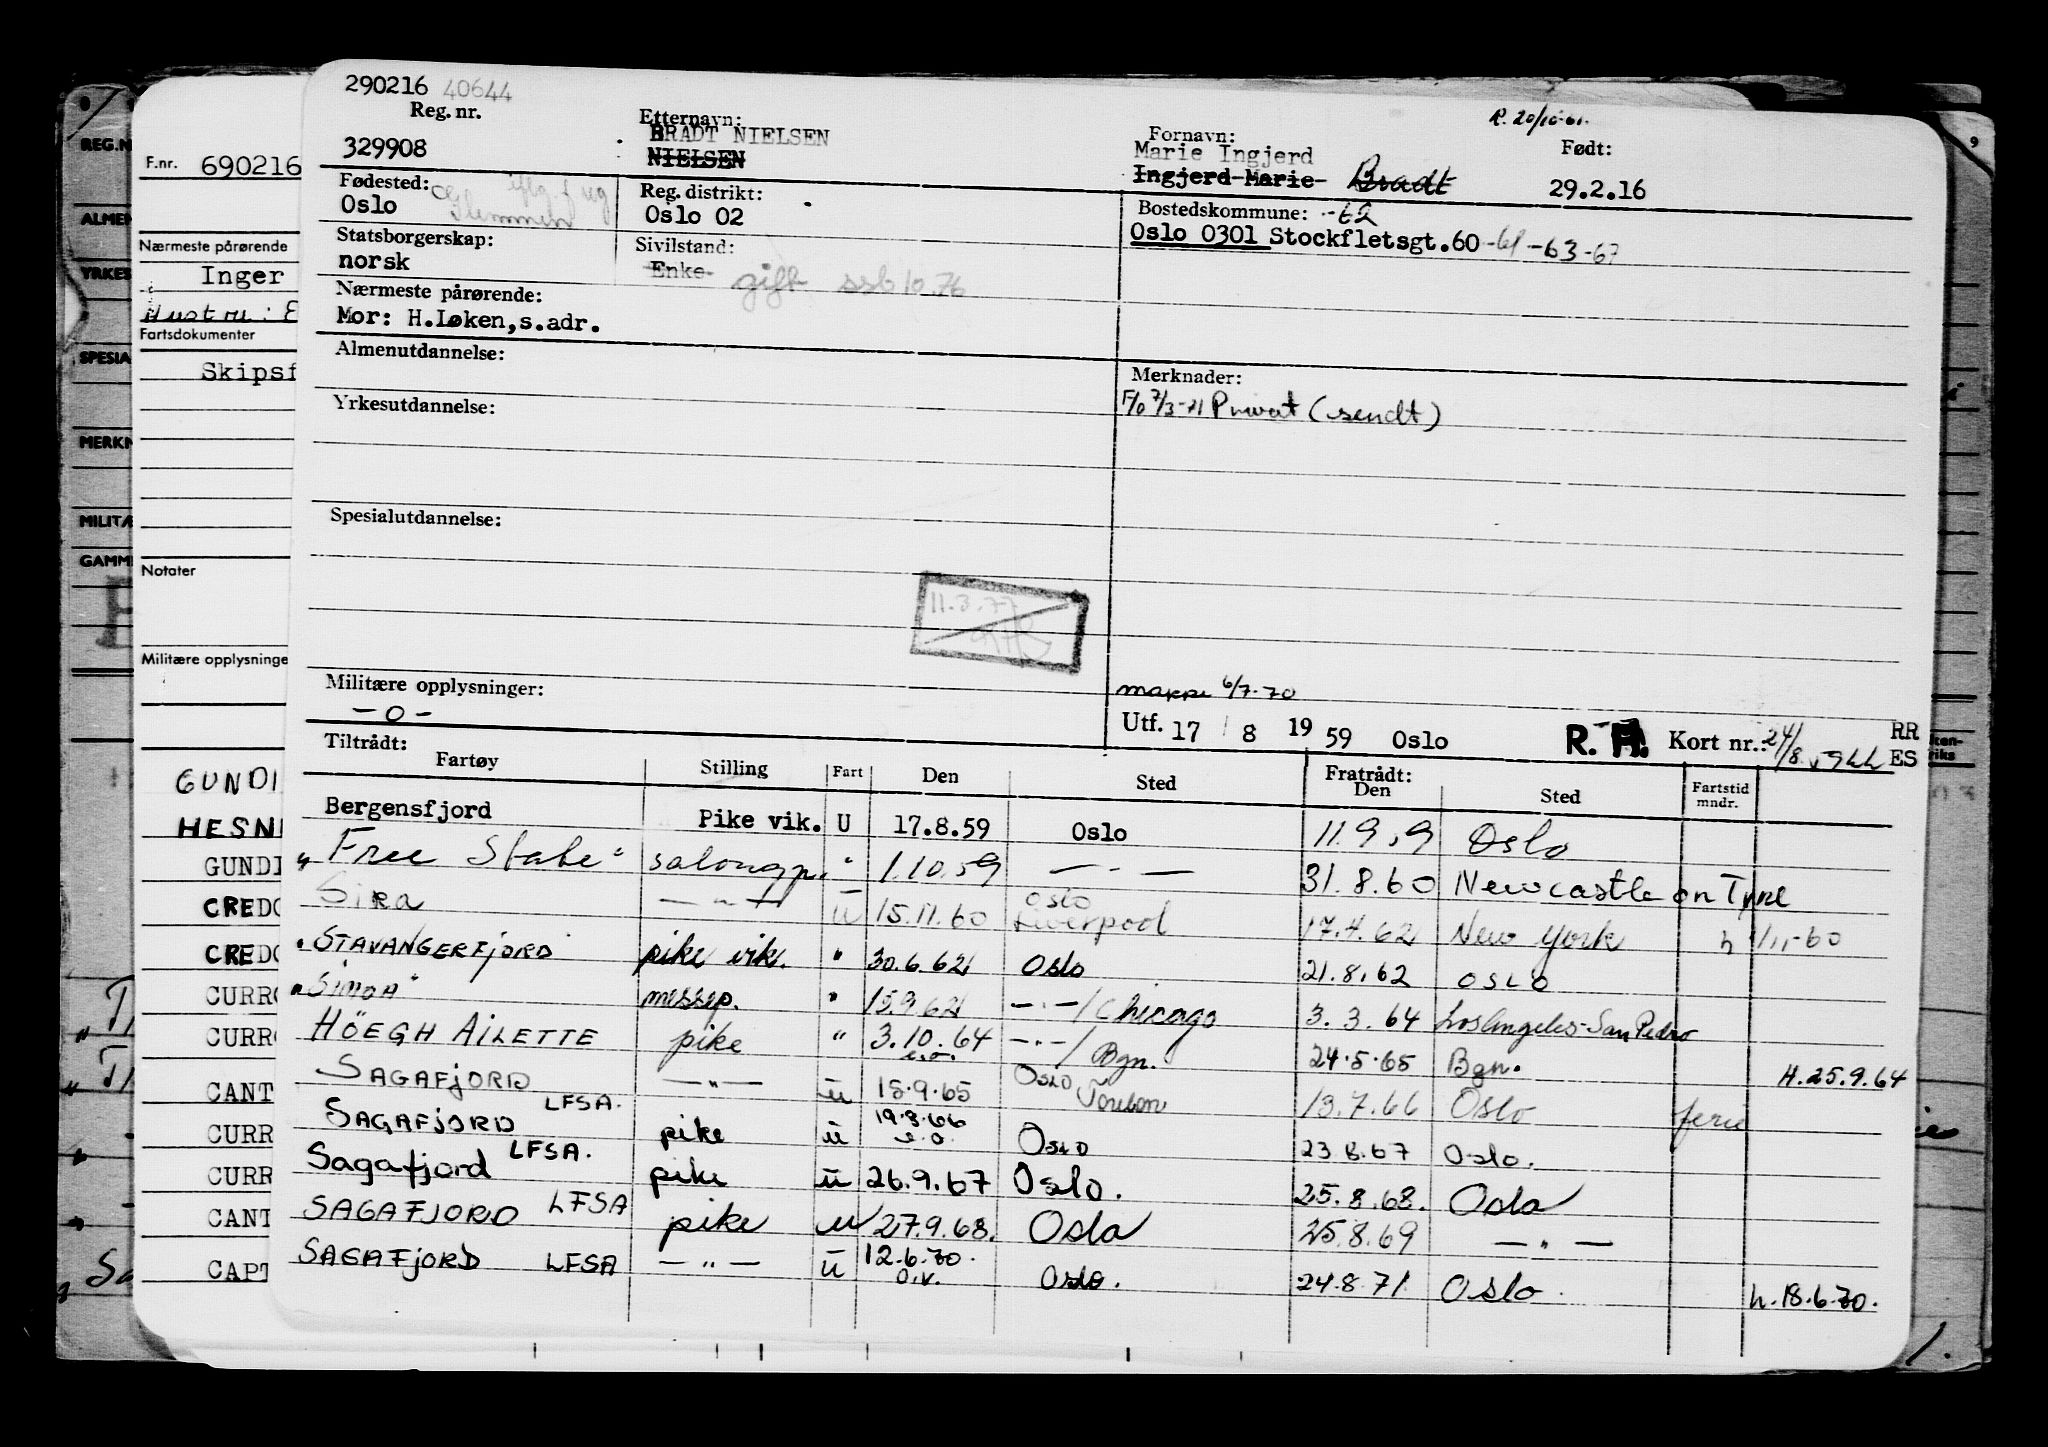 290216 40644
Reg. nr.
329908
Etternavn:
BRADT NIELSEN
NIELSEN
Fornavn:
Marie Ingjerd
Ingjerd Marie Bradt
R. 20/10-61.
Født:
29.2.16
Fødested:
Oslo
Glemmen
Reg. distrikt:
Oslo 02
Bostedskommune:
Oslo 0301 Stockfletsgt.60 -61 -63-67
Statsborgerskap:
norsk
Sivilstand:
Enke gift ssb 10.76
Nærmeste pårørende:
Mor: H.Løken,s.adr.
Almenutdannelse:
Merknader:
F/o 2/3-71 Privat (sendt)
Yrkesutdannelse:
Spesialutdannelse:
11.3.77
Militære opplysninger:
- o -
6/7-70
Utf. 17 / 8 19 59 Oslo R. H. Kort nr.: 24/8 RR
ES
Tiltrådt:
Fartøy Stilling Fart Den Sted Fratrådt: Den Sted Fartstid mndr.
Bergensfjord Pike vik. U 17.8.59 Oslo 11 9 59 Oslo
"Free State" salongp. " 1.10.59 — " — 31.8.60 Newcastle on Tyne
Sira — " — u 15.11.60 Oslo Liverpool 17.4.62 New York h 1/11-60
"STAVANGERFJORD" pike vik. " 30.6.62 Oslo 21.8.62 OSLO
"SIMOA" messep. " 15.9.62 — " — / Chicago 3.3.64 Los Angeles-San Pedro
HÖEGH AILETTE pike " 3.10.64 — " — / Bgn. 24.5.65 Bgn. H.25.9.64
SAGAFJORD — " — u 18.9.65 Oslo 13.7.66 Oslo ferie
SAGAFJORD LFSA. pike u 19.8.66 e.o. Oslo 23.8.67 Oslo.
Sagafjord LFSA. pike u 26.9.67 Oslo. 25.8.68. Oslo
SAGAFJORD LFSA pike u 27.9.68. Oslo 25.8.69 — " —
SAGAFJORD LFSA — " — u 12.6.70. o.v. Oslo. 24.8.71. Oslo. h.18.6.70.
F.nr. 690216
Nærmeste pårørende
Inger
Hustru: E
Fartsdokumenter
Skipsf
Notater
Militære opplysninge
GUNDI
HESN
GUNDI
CREDO
CREDO
CURRO
CURRO
CANT
CURR
CURR
CANT
CAPT
REG.N
ALMEN
YRKES
SPESIA
MERKN
MILITÆ
GAMM
1.